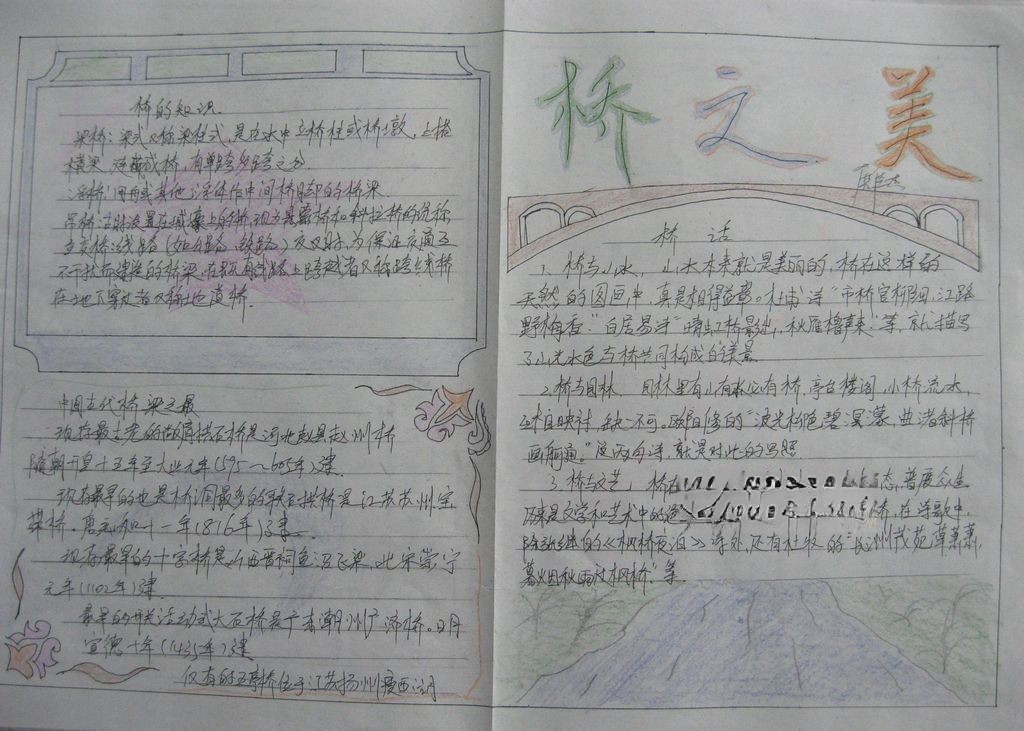 桥的知识
梁桥：梁式又称梁柱式，是在水中立桥柱或桥墩，上搭
横梁，连而成桥，有单跨多跨之分
浮桥：用舟或其他浮体作中间桥脚的桥梁
吊桥：古时设置在城壕上的桥，现为悬索桥和斜拉桥的统称
立交桥：线路（如公路、铁路）交叉时，为保证交通互
不干扰而建造的桥梁，在原有线路上跨越者又称跨线桥
在地下穿过者又称地道桥．
中国古代桥梁之最
现存最古老的敞肩拱石桥是河北赵县赵州桥
隋朝开皇十五年至大业元年（595～605年）建．
现存最早的也是桥洞最多的联石拱桥是江苏苏州宝
带桥．唐元和十一年（816年）建．
现存最早的十字桥是山西晋祠鱼沼飞梁．北宋崇宁
元年（1102年）建．
最早的开关活动式大石桥是广东潮州广济桥。明
宣德十年（1435年）建
仅有的五亭桥位于江苏扬州瘦西湖
桥之美
桥 话
1、桥与山水． 山水本来就是美丽的，桥在这样的
天然的图画中，真是相得益彰。杜甫诗“市桥官柳细，江路
野梅香．”白居易诗“晴虹桥影出，秋雁橹声来．”等，就描写
了山光水色与桥共同构成的美景
2、桥与园林． 园林里有山有水必有桥，亭台楼阁，小桥流水，
互相映衬，缺一不可．欧阳修的“波光柳色碧溟濛，曲渚斜桥
画舸通．”这两句诗，就是对此的写照．
3、桥与文艺． 桥 态，普度众生
历来是文学和艺术中的 桥．在诗歌中，
除张继的《枫桥夜泊》诗外，还有杜牧的“长洲茂苑草萧萧，
暮烟秋雨过枫桥．”等．